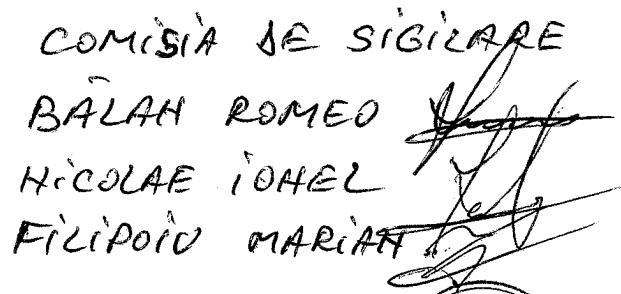 COMISIA DE SIGILARE
BĂLAN ROMEO
NICOLAE IONEL
FILIPOIU MARIAN